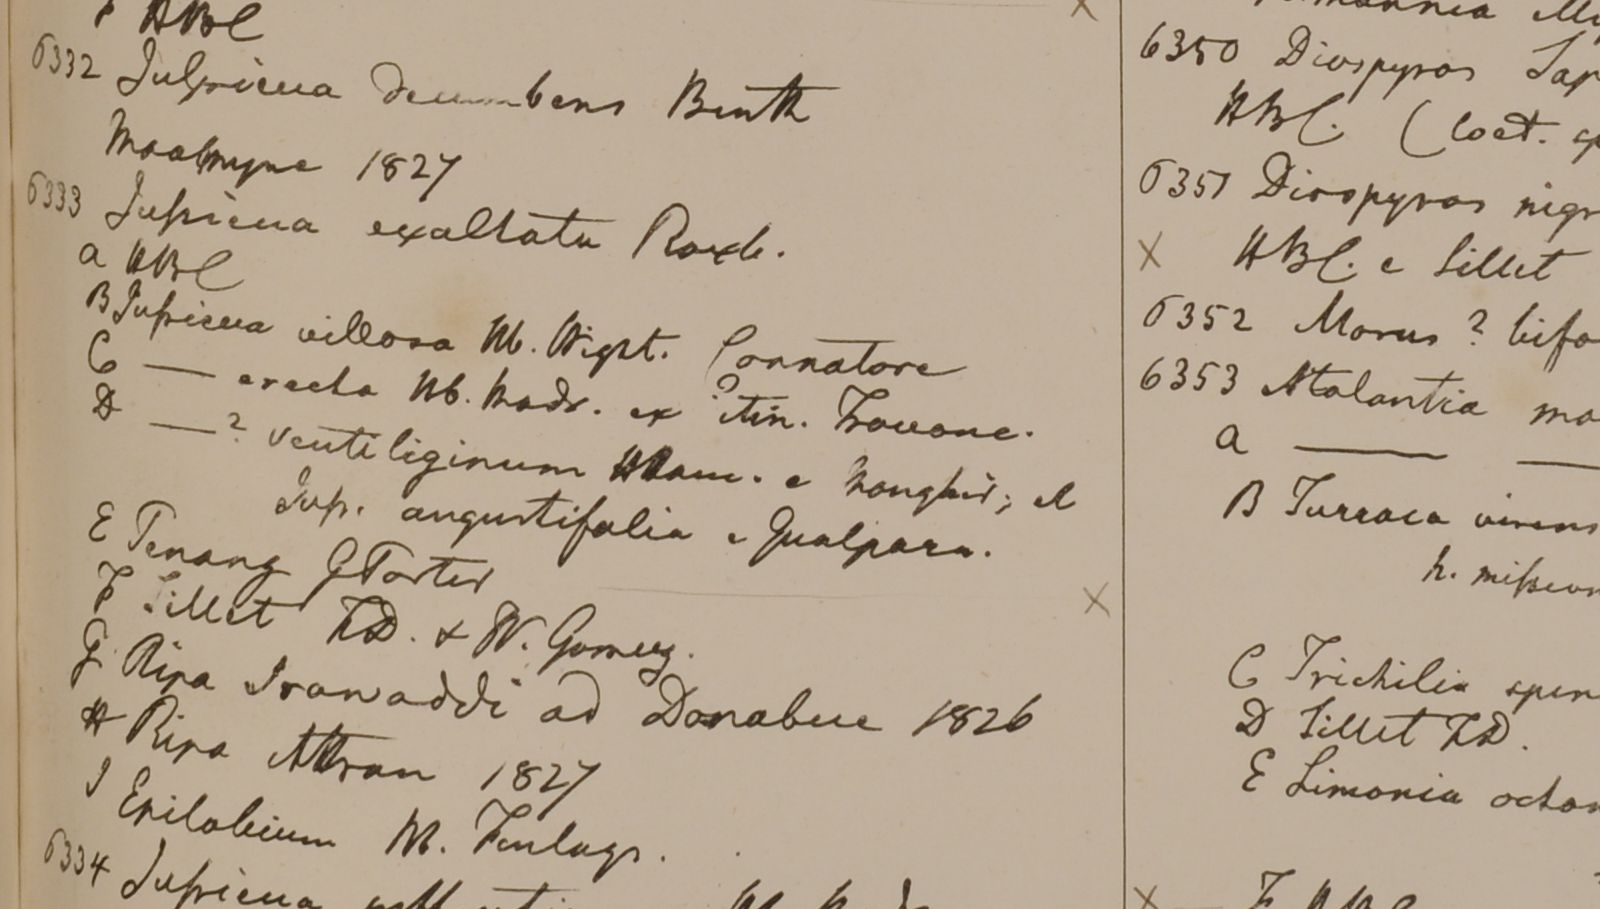 F HBC
6332 Jussieua decumbens Benth
Moalmyne 1827
6333 Jussieua exaltata Roxb.
a HBC
B Jussieua villosa Hb. Wight.
C — erecta Hb. Madr. ex itin.
D —? ventiliginum HHam. e Monghir; et
Jus. angustifolia e Gualpara.
E Penang GPorter
F Sillet FD. & W. Gomez.
G Ripa Irawaddi ad Donabue 1826
H Ripa Attran 1827
I Epilobium Hb. Finlays.
6334 Jussieua
6350 Diospyros Sap
HBC. (Coet. sp
6351 Diospyros nigr
× HBC. e Sillet
6352 Morus ? bifo
6353 Atalantia mo
a — —
B Turraea virens
h. mission
C Trichilia spin
D Sillet FD.
E Limonia octan
× F HBC